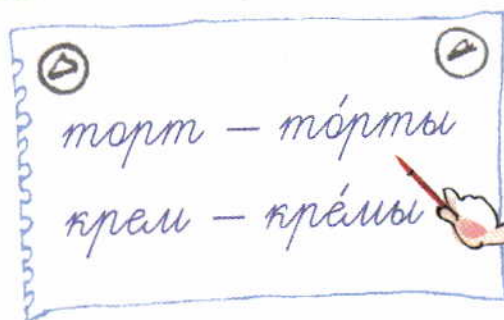 торт – то́рты
крем – кре́мы